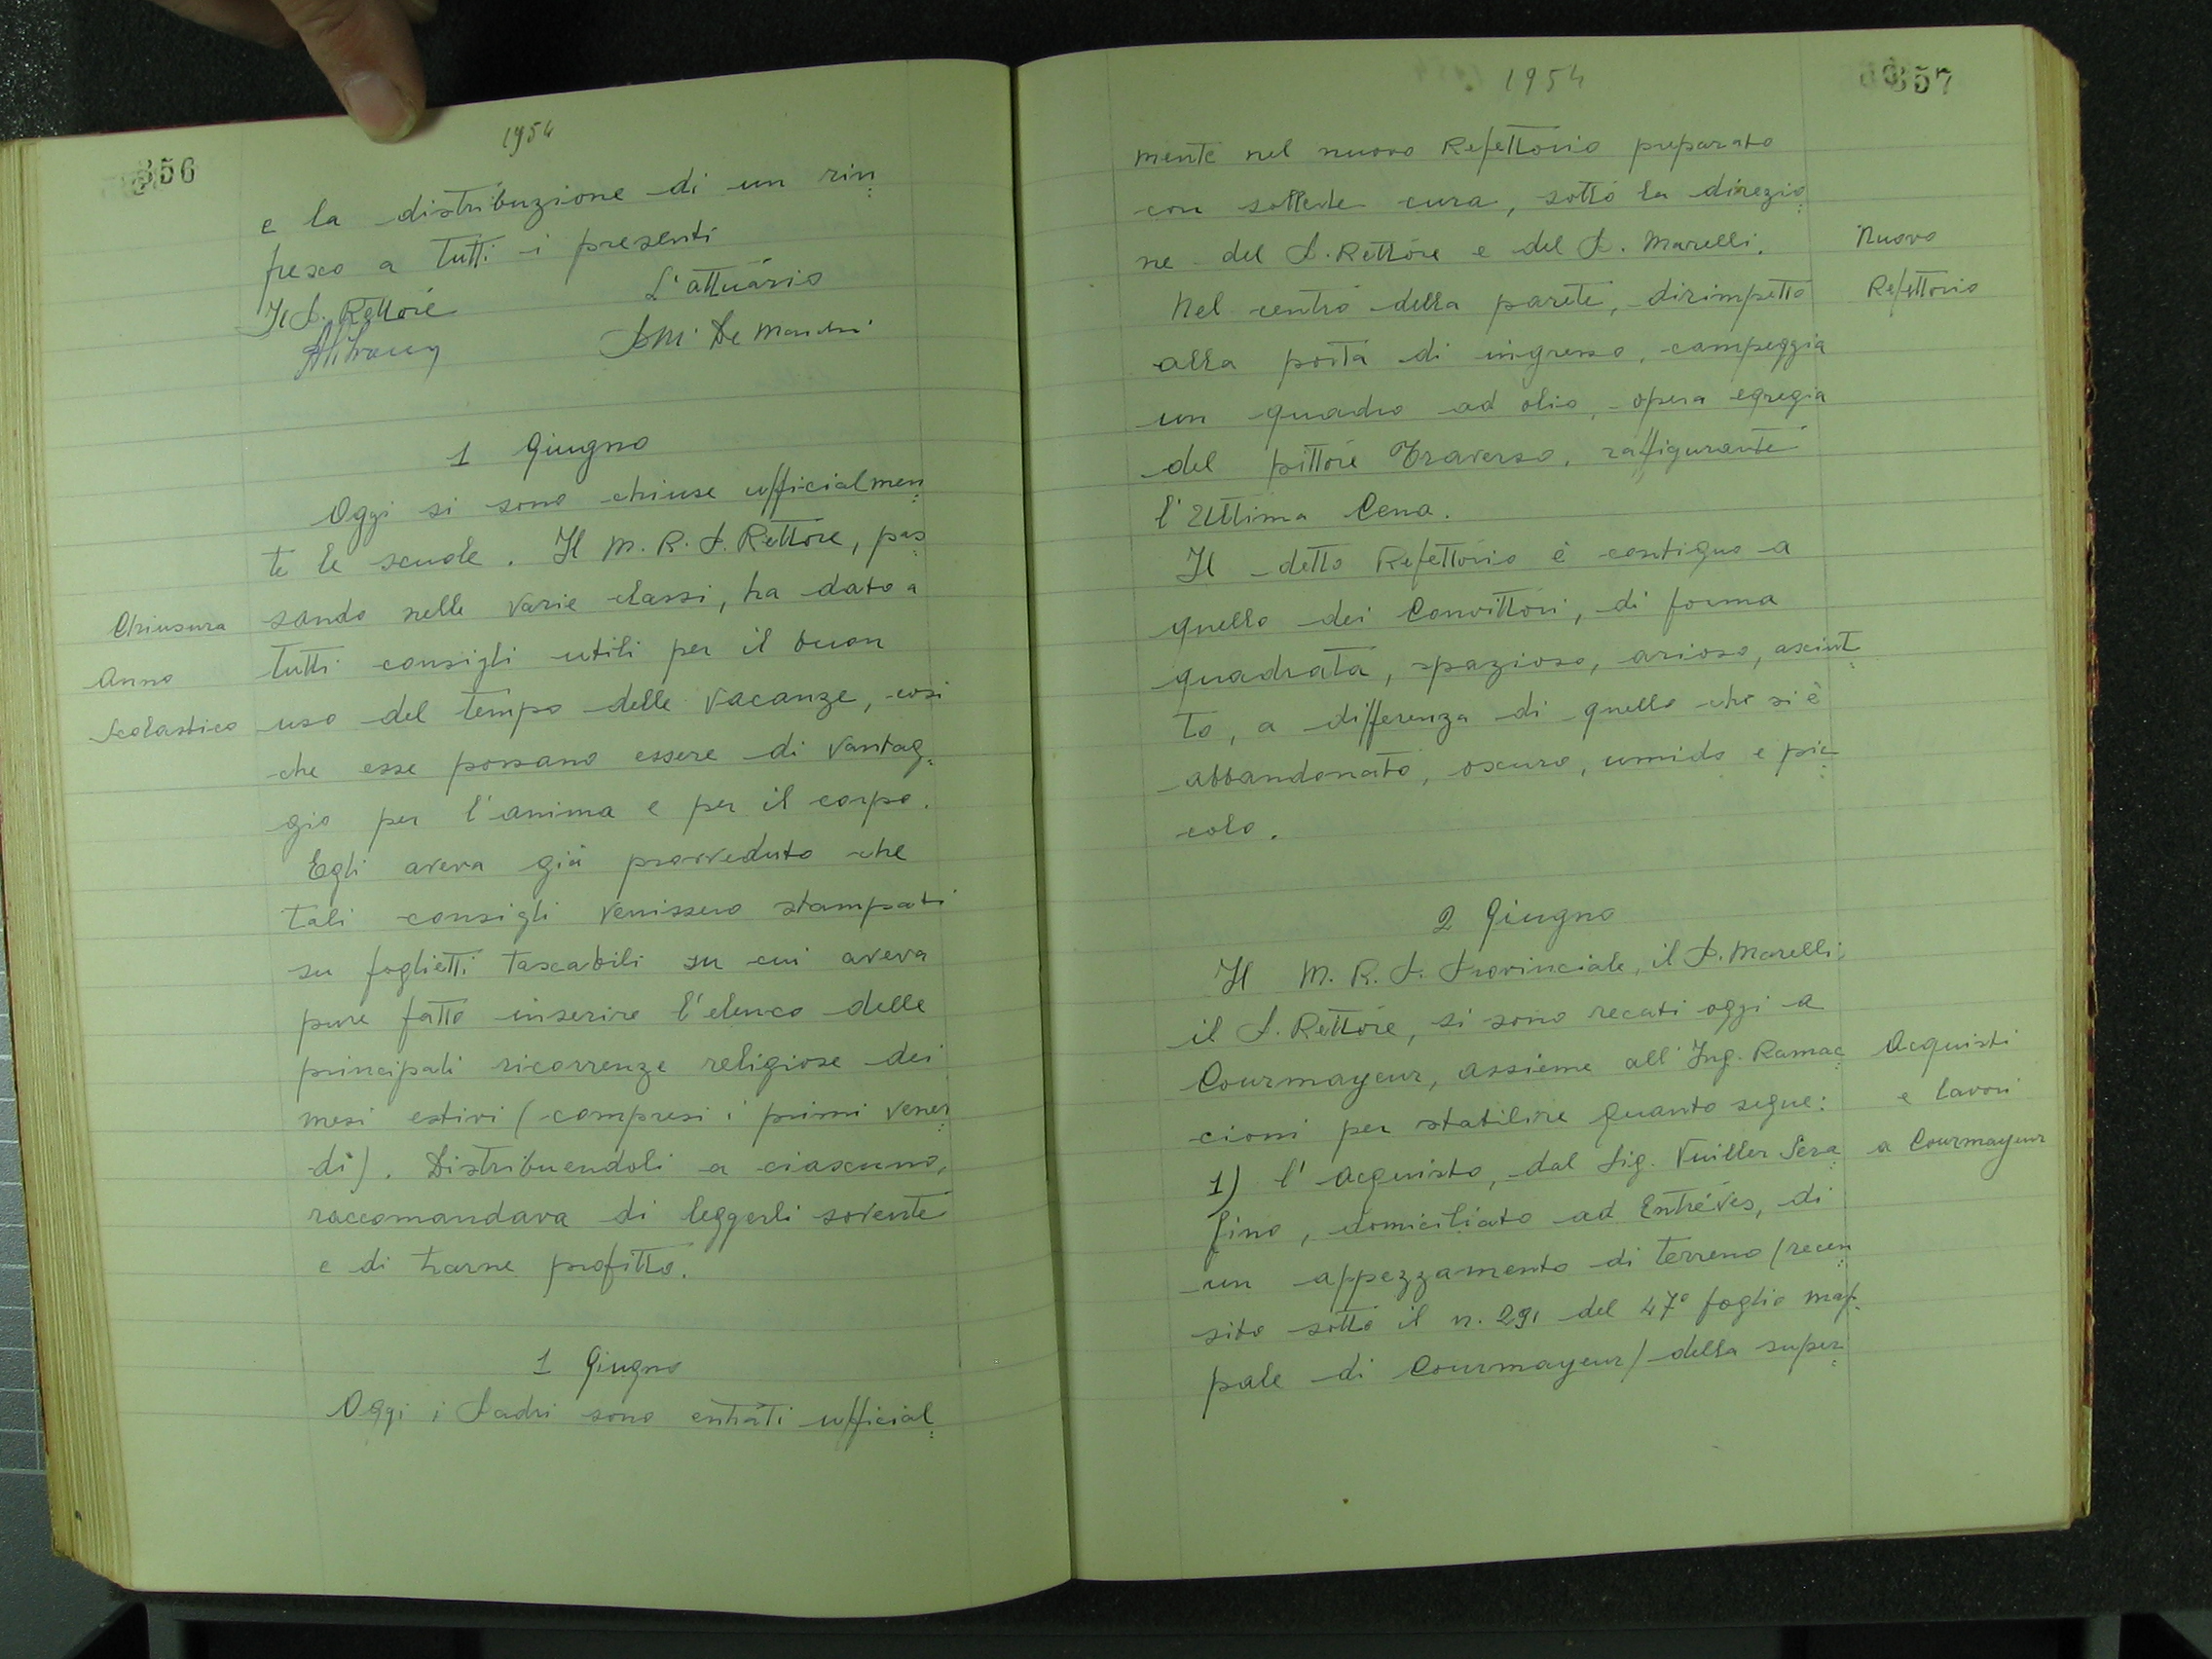 356
1954
e la distribuzione di un rin=
fresco a tutti i presenti
Il P. Rettore
L'attuario
De Marchi
1 Giugno
Oggi si sono chiuse ufficialmen=
te le scuole. Il M. R. P. Rettore, pas=
Chiusura
Anno
Scolastico
sando nelle varie classi, ha dato a
tutti consigli utili per il buon
uso del tempo delle vacanze, così
che esse possano essere di vantag=
gio per l'anima e per il corpo.
Egli aveva già provveduto che
tali consigli venissero stampati
su foglietti tascabili su cui aveva
pure fatto inserire l'elenco delle
principali ricorrenze religiose dei
mesi estivi (compresi i primi vener=
dì). Distribuendoli a ciascuno,
raccomandava di leggerli sovente
e di trarne profitto.
1 Giugno
Oggi i Padri sono entrati ufficial=
1954
357
mente nel nuovo Refettorio preparato
con sollecite cura, sotto la direzio=
ne del P. Rettore e del P. Marelli.
Nuovo
Refettorio
Nel centro della parete, dirimpetto
alla porta di ingresso, campeggia
un quadro ad olio, opera egregia
del pittore Traverso, raffigurante
l'Ultima Cena.
Il detto Refettorio è contiguo a
quello dei Convittori, di forma
quadrata, spazioso, arioso, asciut=
to, a differenza di quello che si è
abbandonato, oscuro, umido e pic=
colo.
2 Giugno
Il M. R. P. Provinciale, il P. Marelli,
il P. Rettore, si sono recati oggi a
Courmayeur, assieme all'Ing. Ramac=
cioni per stabilire quanto segue:
Acquisti
e lavori
a Courmayeur
1) l'acquisto, dal Sig. Vuiller Sera=
fino, domiciliato ad Entréves, di
un appezzamento di terreno (recen=
sito sotto il n. 291 del 47° foglio map=
pale di Courmayeur) della super=